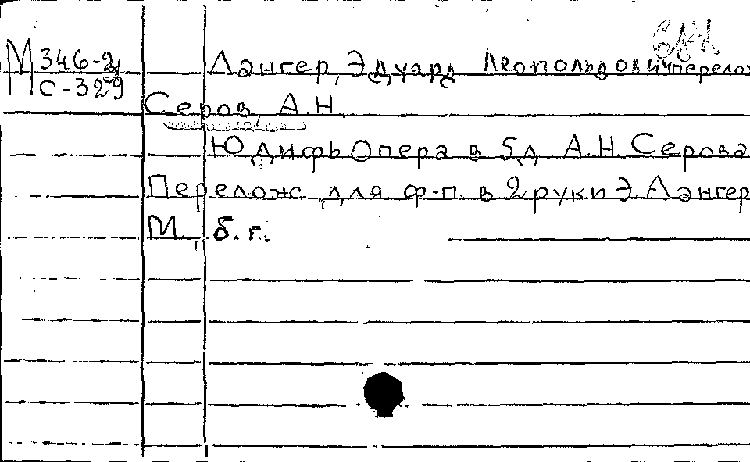 М 346-2
С-329
Лангер, Эдуард Леопольдович перело
Серов, А.Н.
Юдифь Опера в 5 д А.Н. Серова
Перелож. для ф-п. в 2 руки Э. Лангер
М., б. г.